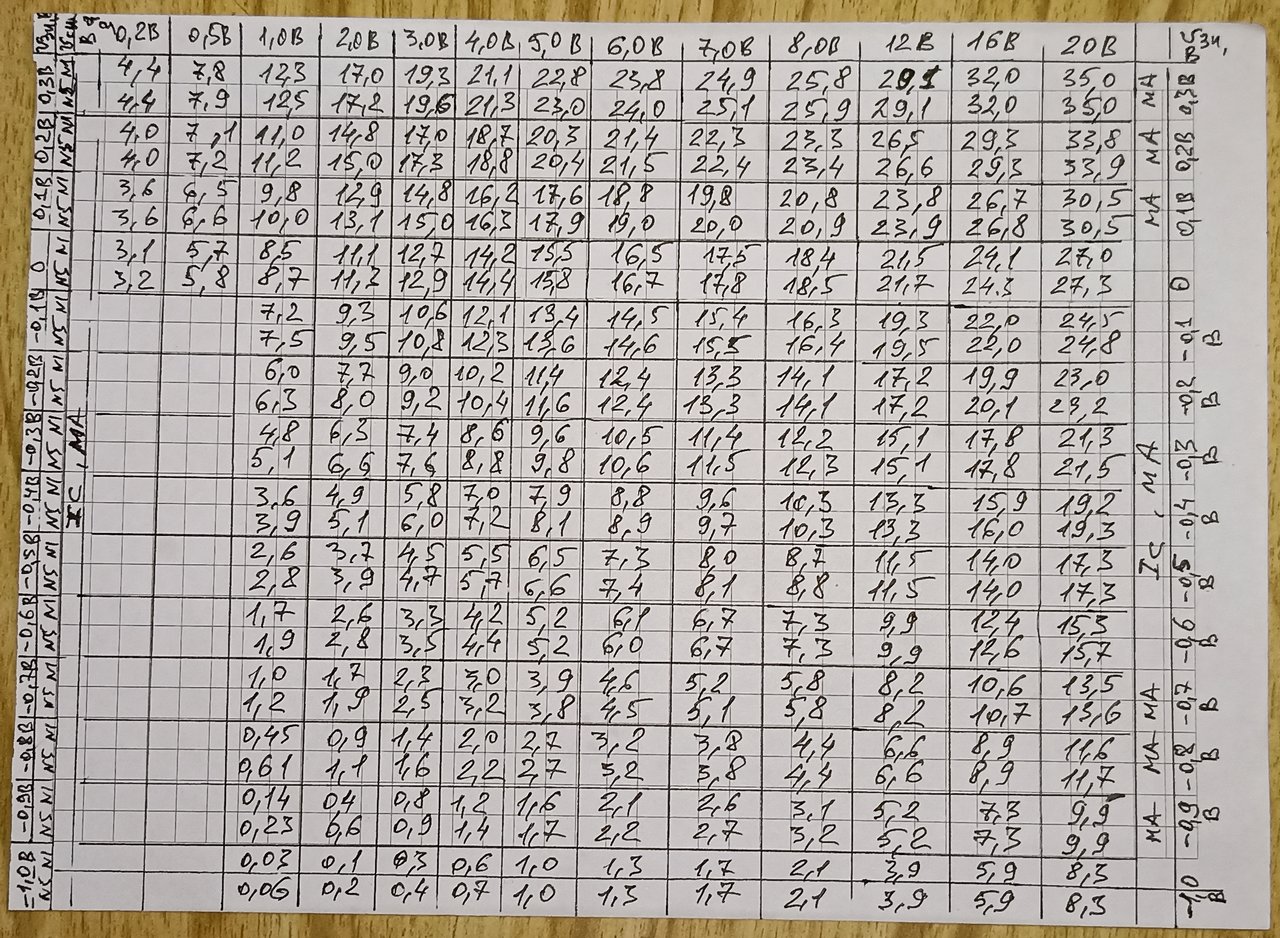 Uзи. Uси В 0,2В 0,5В 1,0В 2,0В 3,0В 4,0В 5,0В 6,0В 7,0В 8,0В 12В 16В 20В Uзи, В
0,3В N1 4,4 7,8 12,3 17,0 19,3 21,1 22,8 23,8 24,9 25,8 29,1 32,0 35,0 МА 0,3В
N5 4,4 7,9 12,5 17,2 19,6 21,3 23,0 24,0 25,1 25,9 29,1 32,0 35,0
0,2В N1 4,0 7,1 11,0 14,8 17,0 18,7 20,3 21,4 22,3 23,3 26,5 29,3 33,8 МА 0,2В
N5 4,0 7,2 11,2 15,0 17,3 18,8 20,4 21,5 22,4 23,4 26,6 29,3 33,9
0,1В N1 3,6 6,5 9,8 12,9 14,8 16,2 17,6 18,8 19,8 20,8 23,8 26,7 30,5 МА 0,1В
N5 3,6 6,6 10,0 13,1 15,0 16,3 17,9 19,0 20,0 20,9 23,9 26,8 30,5
0 N1 3,1 5,7 8,5 11,1 12,7 14,2 15,5 16,5 17,5 18,4 21,5 24,1 27,0 0
N5 3,2 5,8 8,7 11,3 12,9 14,4 15,8 16,7 17,8 18,5 21,7 24,3 27,3
-0,1В N1 7,2 9,3 10,6 12,1 13,4 14,5 15,4 16,3 19,3 22,0 24,5 -0,1 В
N5 7,5 9,5 10,8 12,3 13,6 14,6 15,5 16,4 19,5 22,0 24,8
-0,2В N1 6,0 7,7 9,0 10,2 11,4 12,4 13,3 14,1 17,2 19,9 23,0 -0,2 В
N5 6,3 8,0 9,2 10,4 11,6 12,4 13,3 14,1 17,2 20,1 23,2
-0,3В N1 IC, МА 4,8 6,3 7,4 8,6 9,6 10,5 11,4 12,2 15,1 17,8 21,3 IC, МА -0,3 В
N5 5,1 6,6 7,6 8,8 9,8 10,6 11,5 12,3 15,1 17,8 21,5
-0,4В N1 3,6 4,9 5,8 7,0 7,9 8,8 9,6 10,3 13,3 15,9 19,2 -0,4 В
N5 3,9 5,1 6,0 7,2 8,1 8,9 9,7 10,3 13,3 16,0 19,3
-0,5В N1 2,6 3,7 4,5 5,5 6,5 7,3 8,0 8,7 11,5 14,0 17,3 -0,5 В
N5 2,8 3,9 4,7 5,7 6,6 7,4 8,1 8,8 11,5 14,0 17,3
-0,6В N1 1,7 2,6 3,3 4,2 5,2 6,1 6,7 7,3 9,9 12,4 15,3 -0,6 В
N5 1,9 2,8 3,5 4,4 5,2 6,0 6,7 7,3 9,9 12,6 15,7
-0,7В N1 1,0 1,7 2,3 3,0 3,9 4,6 5,2 5,8 8,2 10,6 13,5 МА -0,7 В
N5 1,2 1,9 2,5 3,2 3,8 4,5 5,1 5,8 8,2 10,7 13,6
-0,8В N1 0,45 0,9 1,4 2,0 2,7 3,2 3,8 4,4 6,6 8,9 11,6 МА -0,8 В
N5 0,61 1,1 1,6 2,2 2,7 3,2 3,8 4,4 6,6 8,9 11,7
-0,9В N1 0,14 0,4 0,8 1,2 1,6 2,1 2,6 3,1 5,2 7,3 9,9 МА -0,9 В
N5 0,23 0,6 0,9 1,4 1,7 2,2 2,7 3,2 5,2 7,3 9,9
-1,0В N1 0,03 0,1 0,3 0,6 1,0 1,3 1,7 2,1 3,9 5,9 8,3 -1,0 В
N5 0,06 0,2 0,4 0,7 1,0 1,3 1,7 2,1 3,9 5,9 8,3